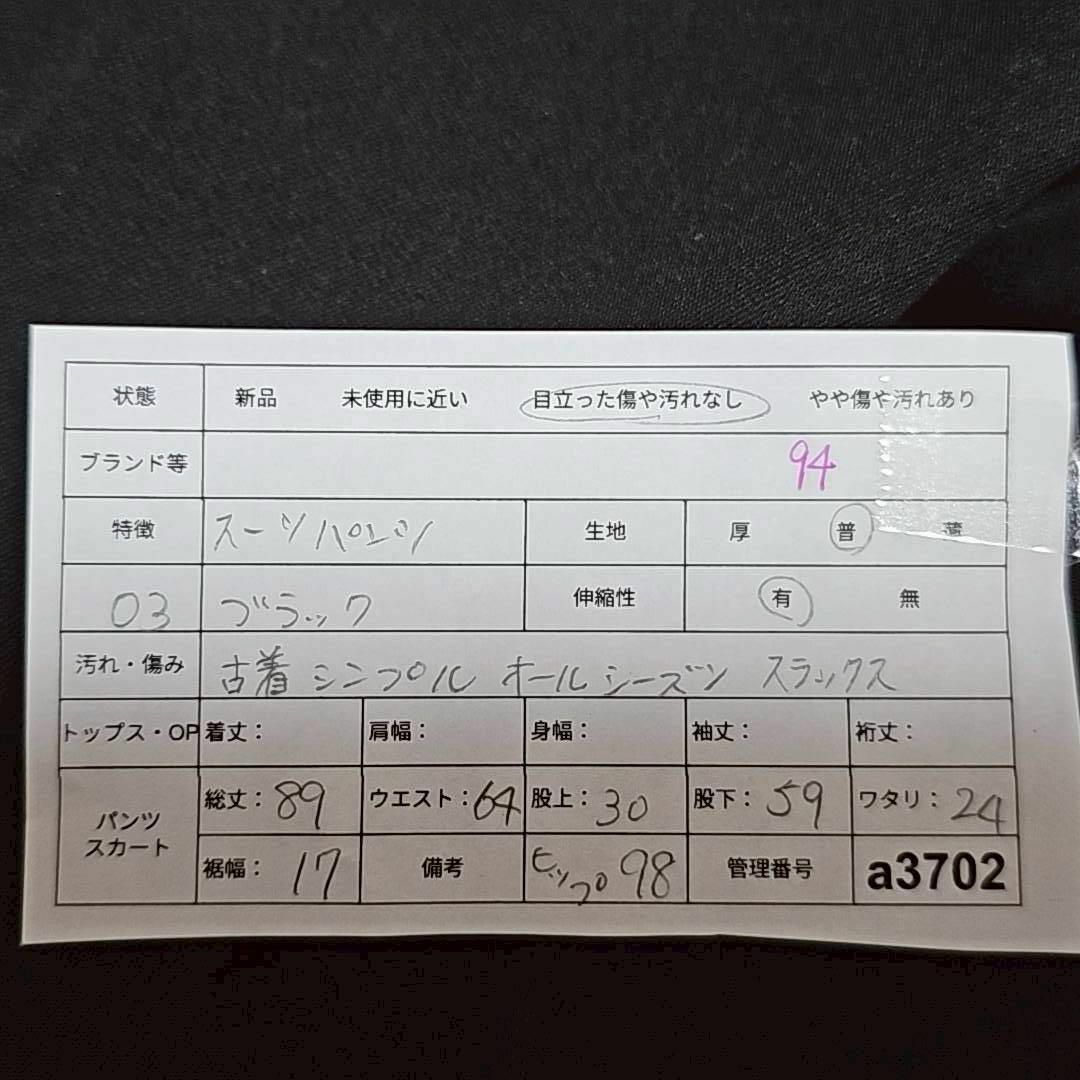 状態 新品 未使用に近い 目立った傷や汚れなし やや傷や汚れあり
ブランド等 94
特徴 スーツパンツ 生地 厚 普 薄
03 ブラック 伸縮性 有 無
汚れ・傷み 古着 シンプル オールシーズン スラックス
トップス・OP 着丈: 肩幅: 身幅: 袖丈: 裄丈:
パンツ スカート 総丈:89 ウエスト:64 股上:30 股下:59 ワタリ:24
裾幅:17 備考 ヒップ98 管理番号 a3702